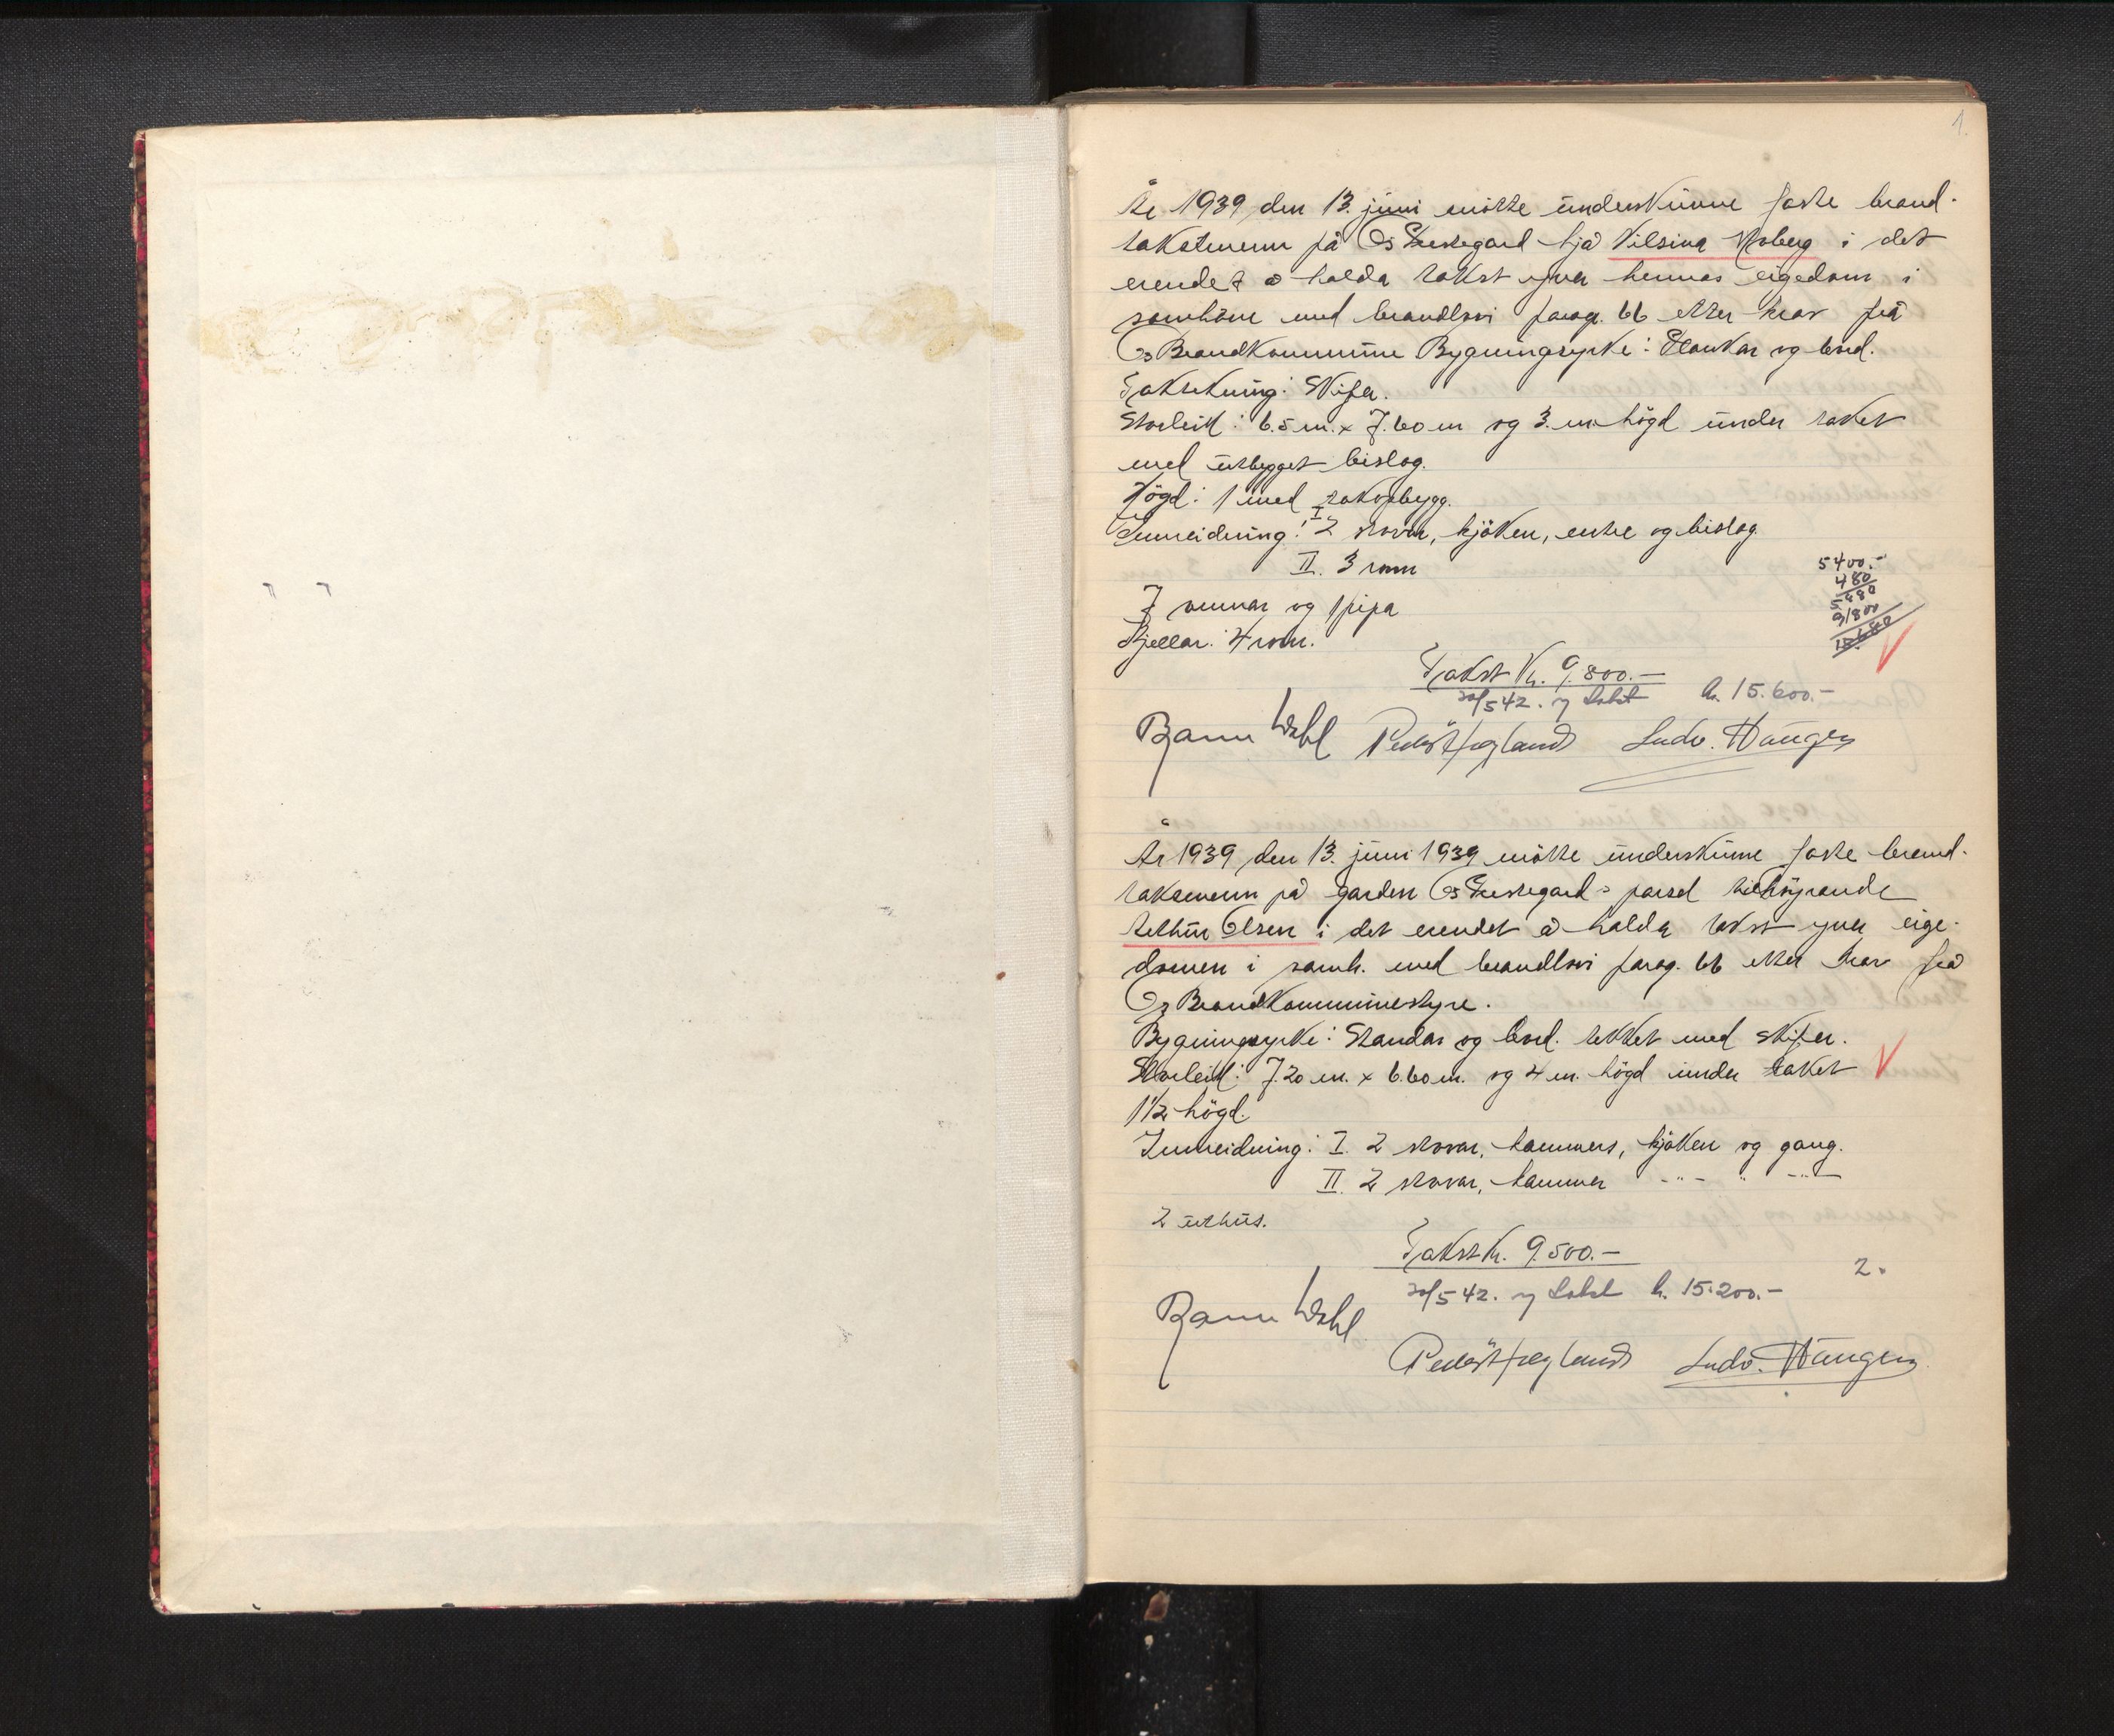 1.
År 1939 den 13. juni møtte underskrivne faste brand-
takstmenn på Os Prestegard hjå Nilsina Moberg i det
erendet å halda takst yver hennas eigedom i
samhøve med brandlovi parag. 66 etter krav frå
Os Brandkommune Bygningsyrke: Plankar og bord.
Taktekning: Skifer.
Storleik: 6.5 m. x 7.60 m og 3. m. högd under taket
med utbygget bislag.
Högd: 1 med takopbygg.
Innreidning: I 2 stovor, kjöken, entre og bislag.
II. 3 rom
7 omnar og 1 pipa
Kjellar: 4 rom.
5400.-
480
5880
9/800
Takst Kr. 9.800.-
20/5 42. ny takst kr. 15.600.-
Wahl Peder Høgland Ludv. Haugen
År 1939 den 13. juni 1939 møtte underskrivne faste brand-
taksmenn på garden Os Prestegard - parsel tilhøyrande
Arthur Olsen i det erendet å halda takst yver eige-
domen i samh. med brandlovi parag. 66 etter krav frå
Os Brandkommunestyre.
Bygningsyrke: Standar og bord. tekket med skifer.
Storleik: 7.20 m. x 6.60 m. og 4 m. högd under taket
1½ högd.
Innreidning: I. 2 stovar, kammers, kjöken og gang.
II. 2 stovar, kammer -"- " -"-
2 uthus.
Takst Kr. 9.500.-
2.
20/5 42. ny takst kr. 15.200.-
Wahl
Peder Høgland Ludv. Haugen